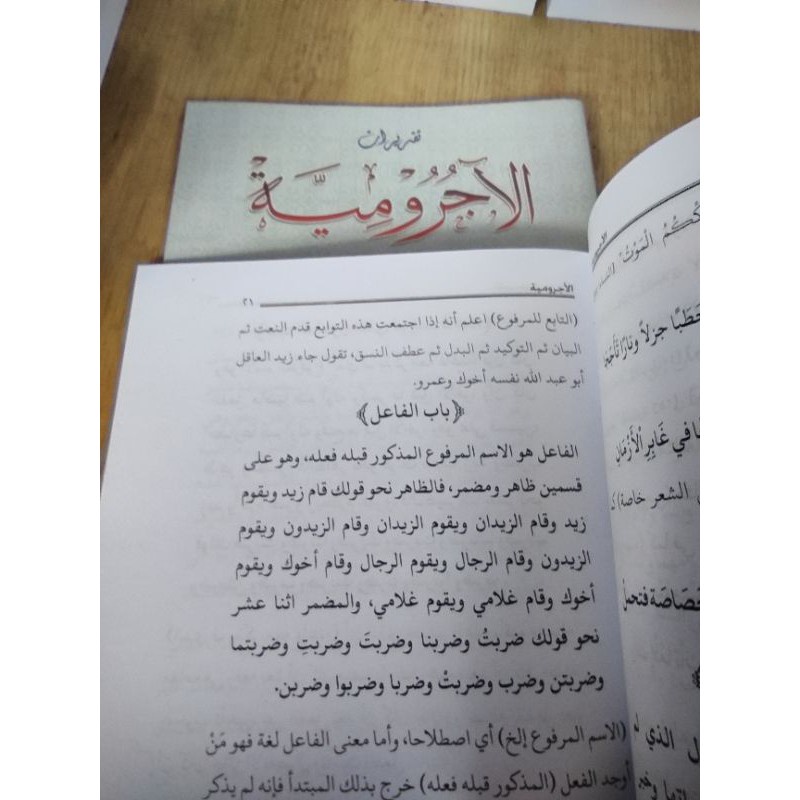 تقريرات
الآجُرُومِيَّة
الآجرومية
٢١
(التابع للمرفوع) اعلم أنه إذا اجتمعت هذه التوابع قدم النعت ثم
البيان ثم التوكيد ثم البدل ثم عطف النسق، تقول جاء زيد العاقل
أبو عبد الله نفسه أخوك وعمرو.
﴿باب الفاعل﴾
الفاعل هو الاسم المرفوع المذكور قبله فعله، وهو على
قسمين ظاهر ومضمر، فالظاهر نحو قولك قام زيد ويقوم
زيد وقام الزيدان ويقوم الزيدان وقام الزيدون ويقوم
الزيدون وقام الرجال ويقوم الرجال وقام أخوك ويقوم
أخوك وقام غلامي ويقوم غلامي، والمضمر اثنا عشر
نحو قولك ضربتُ وضربنا وضربتَ وضربتِ وضربتما
وضربتن وضرب وضربتْ وضربا وضربوا وضربن.
(الاسم المرفوع إلخ) أي اصطلاحا، وأما معنى الفاعل لغة فهو مَنْ
أوجد الفعل (المذكور قبله فعله) خرج بذلك المبتدأ فإنه لم يذكر
كُكُمُ الْمَوْتُ
حَطَبًا جزلاً ونارًا
في غَابِرِ الأَزْمَانِ
الشعر خاصة)
الذي